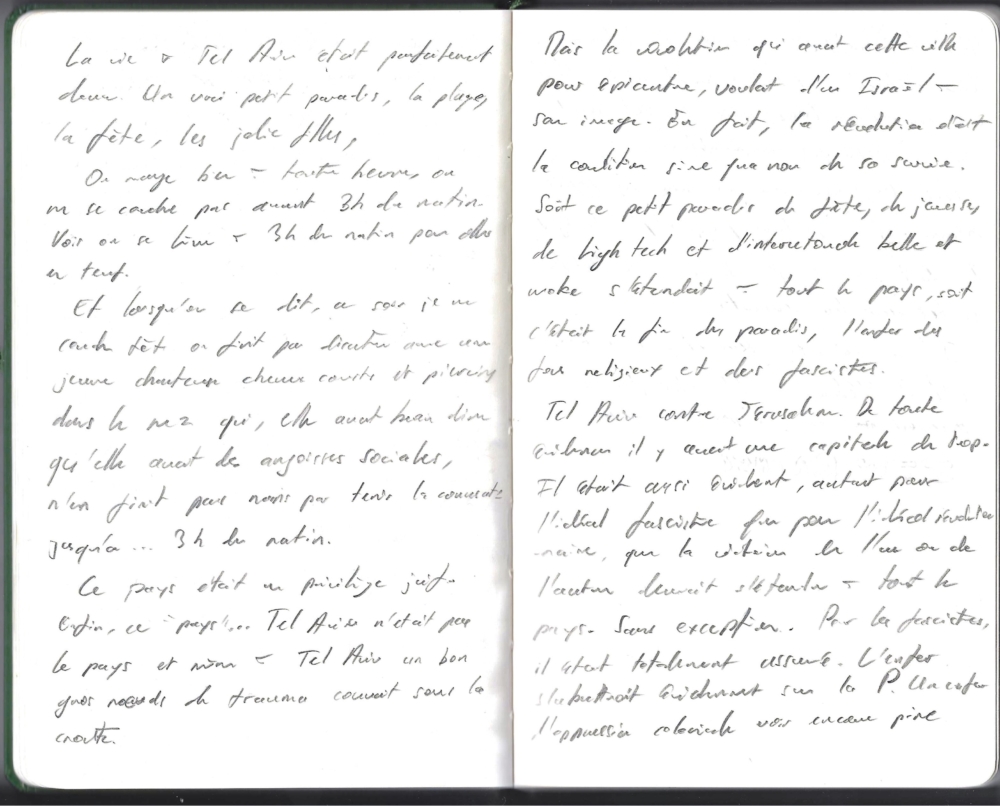 La vie à Tel Aviv était parfaitement
douce. Un vrai petit paradis, la plage,
la fête, les jolie filles,
On mange bien à toute heure, on
ne se couche pas avant 3h du matin.
Voir on se lève à 3h du matin pour aller
en teuf.
Et lorsqu'on se dit, ce soir je me
couche tôt on finit par discuter avec une
jeune chanteuse cheveux courts et piercing
dans le nez qui, elle avait beau dire
qu'elle avait des angoisses sociales,
n'en finit pas moins par tenir la
jusqu'à ... 3h du matin.
Ce pays était un privilège juif.
Enfin, ce "pays"... Tel Aviv n'était pas
le pays et même à Tel Aviv un bon
gros noeuds de trauma couvait sous la
croûte.
Mais la révolution qui avait cette ville
pour épicentre, voulait d'un Israël à
son image. En fait, la révolution était
la condition sine qua non de sa survie.
Soit ce petit paradis de fête, de jeunesse,
de high tech et d'intersectionnelle belle et
woke s'étendait à tout le pays, soit
c'était la fin du paradis, l'enfer des
fous religieux et des fascistes.
Tel Aviv contre Jerusalem. De toute
évidence il y avait une capitale de trop.
Il était aussi évident, autant pour
l'idéal fasciste que pour l'idéal révolution
-naire, que la victoire de l'un ou de
l'autre devait s'étendre à tout le
pays. Sans exception. Pour les fascistes,
il était totalement assumé. L'enfer
s'abattrait évidemment sur la P. Un enfer
l'oppression coloniale voir encore pire